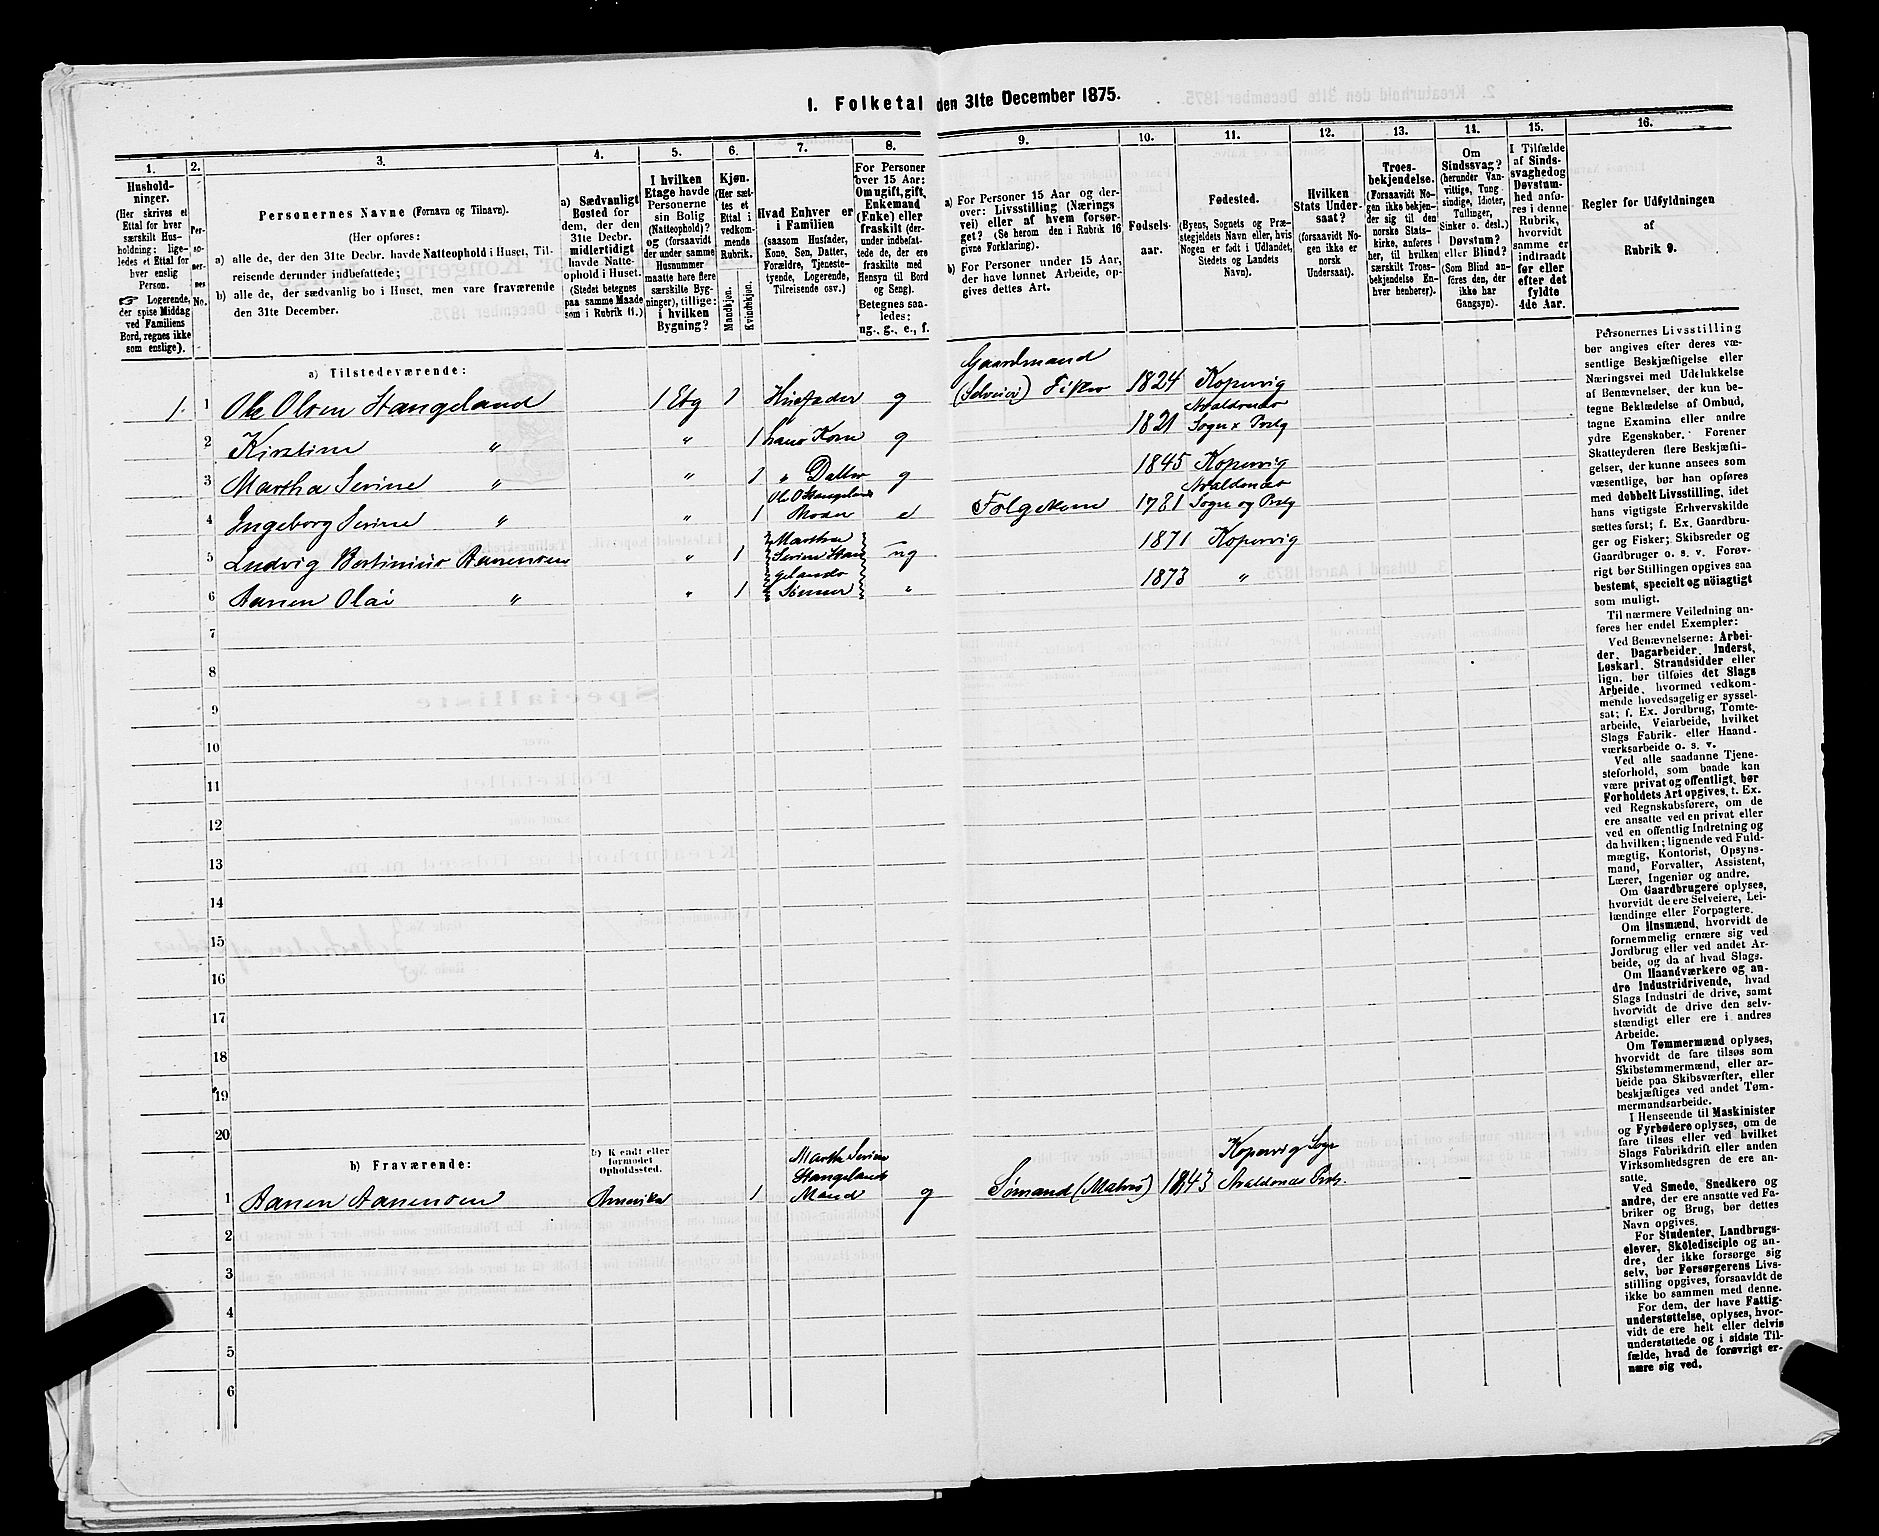 1. Folketal den 31te December 1875.
1. 2. 3. 4. 5. 6. 7. 8. 9. 10. 11. 12. 13. 14. 15. 16.
Hushold-
ninger.
(Her skrives et
Ettal for hver
særskilt Hus-
holdning; lige-
ledes et Ettal for
hver enslig
Person.
☞ Logerende,
der spise Middag
ved Familiens
Bord, regnes ikke
som enslige).
Per-
so-
ner-
nes
No.
Personernes Navne (Fornavn og Tilnavn).
(Her opføres:
a) alle de, der den 31te Decbr. havde Natteophold i Huset, Til-
reisende derunder indbefattede;
b) alle de, der sædvanlig bo i Huset, men vare fraværende
den 31te December.
a) Sædvanligt
Bosted for
dem, der den
31te Decbr.
midlertidigt
havde Natte-
ophold i Huset.
(Stedet betegnes
paa samme Maade
som i Rubrik 11.)
I hvilken
Etage havde
Personerne
sin Bolig
(Natteophold)?
og (forsaavidt
der under samme
Husnummer
maatte høre flere
særskilte Byg-
ninger), tillige:
i hvilken
Bygning?
Kjøn.
(Her sæt-
tes et
Ettal i
vedkom-
mende
Rubrik.
Mandkjøn.
Kvindekjøn.
Hvad Enhver er
i Familien
(saasom Husfader,
Kone, Søn, Datter,
Forældre, Tjeneste-
tyende, Logerende,
Tilreisende osv.)
For Personer
over 15 Aar:
Om ugift, gift,
Enkemand
(Enke) eller
fraskilt (der-
under indbefat-
tede de, der ere
fraskilte med
Hensyn til Bord
og Seng).
Betegnes saa-
ledes:
ug., g., e., f.
a) For Personer 15 Aar og der-
over: Livsstilling (Nærings-
vei) eller af hvem forsør-
get? (Se herom den i Rubrik 16
givne Forklaring).
b) For Personer under 15 Aar,
der have lønnet Arbeide, op-
gives dettes Art.
Fødsels-
aar.
Fødested.
(Byens, Sognets og Præ-
stegjeldets Navn eller, hvis
Nogen er født i Udlandet,
Stedets og Landets
Navn).
Hvilken
Stats Under-
saat?
(forsaavidt No-
gen ikke er
norsk
Undersaat).
Troes-
bekjendelse.
(Forsaavidt No-
gen ikke bekjen-
der sig til den
norske Stats-
kirke, anføres
her, til hvilken
særskilt Troes-
bekjendelse En-
hver henhører).
Om
Sindssvag?
(herunder Van-
vittige, Tung-
sindige, Idioter,
Tullinger,
Sinker o. desl.)
Døvstum?
eller Blind?
(Som Blind an-
føres den, der
ikke har
Gangsyn).
I Tilfælde
af Sinds-
svaghed og
Døvstum-
hed anfø-
res i denne
Rubrik,
hvorvidt
samme er
indtraadt
før eller
efter det
fyldte
4de Aar.
Regler for Udfyldningen
af
Rubrik 9.
a) Tilstedeværende:
1. 1 Ole Olsen Stangeland 1 Etg 1 Husfader g Gaardmand (Selveier) Fisker 1824 Kopervig
2 Kirstine " " 1 hans Kone g 1821 Avaldsnæs Sogn & Prstg
3 Martha Serine " " 1 " Datter g 1845 Kopervig
4 Ingeborg Serine " " 1 Ole O Stangelands Moder e Folgekone 1781 Avaldsnæs Sogn og Prstg
5 Ludvig Bertinius Aanensen " 1 Martha Serine Stangelands Sønner ug 1871 Kopervig
6 Aanen Olai " " 1 " 1873 "
7
8
9
10
11
12
13
14
15
16
17
18
19
20
b) Fraværende:
b) Kjendt eller
formodet
Opholdssted.
1 Aanen Aanensen Amerika 1 Martha Serine Stangelands Mand g Sømand (Matros) 1843 Kopervig Sogn Avaldsnæs Prstg.
2
3
4
5
6
Personernes Livsstilling
bør angives efter deres væ-
sentlige Beskjæftigelse eller
Næringsvei med Udelukkelse
af Benævnelser, der kun be-
tegne Beklædelse af Ombud,
tagne Examina eller andre
ydre Egenskaber. Forener
Skatteyderen flere Beskjæfti-
gelser, der kunne ansees som
væsentlige, bør han opføres
med dobbelt Livsstilling, idet
hans vigtigste Erhvervskilde
sættes først; f. Ex. Gaardbru-
ger og Fisker; Skibsreder og
Gaardbruger o. s. v. Forøv-
rigt bør Stillingen opgives saa
bestemt, specielt og nöiagtigt
som muligt.
Til nærmere Veiledning an-
føres her endel Exempler:
Ved Benævnelserne: Arbei-
der, Dagarbeider, Inderst,
Løskarl, Strandsidder eller
lign. bør tilføies det Slags
Arbeide, hvormed vedkom-
mende hovedsagelig er syssel-
sat; f. Ex. Jordbrug, Tomte-
arbeide, Veiarbeide, hvilket
Slags Fabrik- eller Haand-
værksarbeide o. s. v.
Ved alle saadanne Tjene-
steforhold, som baade kan
være privat og offentligt, bør
Forholdets Art opgives, t. Ex.
ved Regnskabsførere, om de
ere ansatte ved en privat eller
ved en offentlig Indretning og
da hvilken; lignende ved Fuld-
mægtig, Kontorist, Opsyns-
mand, Forvalter, Assistent,
Lærer, Ingeniør og andre.
Om Gaardbrugere oplyses,
hvorvidt de ere Selveiere, Lei-
lændinge eller Forpagtere.
Om Husmænd, hvorvidt de
fornemmelig ernære sig ved
Jordbrug eller ved andet Ar-
beide, og da af hvad Slags.
Om Haandværkere og an-
dre Industridrivende, hvad
Slags Industri de drive, samt
hvorvidt de drive den selv-
stændigt eller ere i andres
Arbeide.
Om Tømmermænd oplyses,
hvorvidt de fare tilsøs som
Skibstømmermænd, eller ar-
beide paa Skibsværfter, eller
beskjæftiges ved andet Tøm-
mermandsarbeide.
I Henseende til Maskinister
og Fyrbødere oplyses, om de
fare tilsøs eller ved hvilket
Slags Fabrikdrift eller anden
Virksomhedsgren de ere an-
satte.
Ved Smede, Snedkere og
andre, der ere ansatte ved Fa-
briker og Brug, bør dettes
Navn opgives.
For Studenter, Landbrugs-
elever, Skoledisciple og an-
dre, der ikke forsørge sig
selv, bør Forsørgerens Livs-
stilling opgives, forsaavidt de
ikke bo sammen med denne.
For dem, der have Fattig-
understøttelse, oplyses, hvor-
vidt de ere helt eller delvis
understøttede og i sidste Til-
fælde, hvad de forøvrigt er-
nære sig ved.